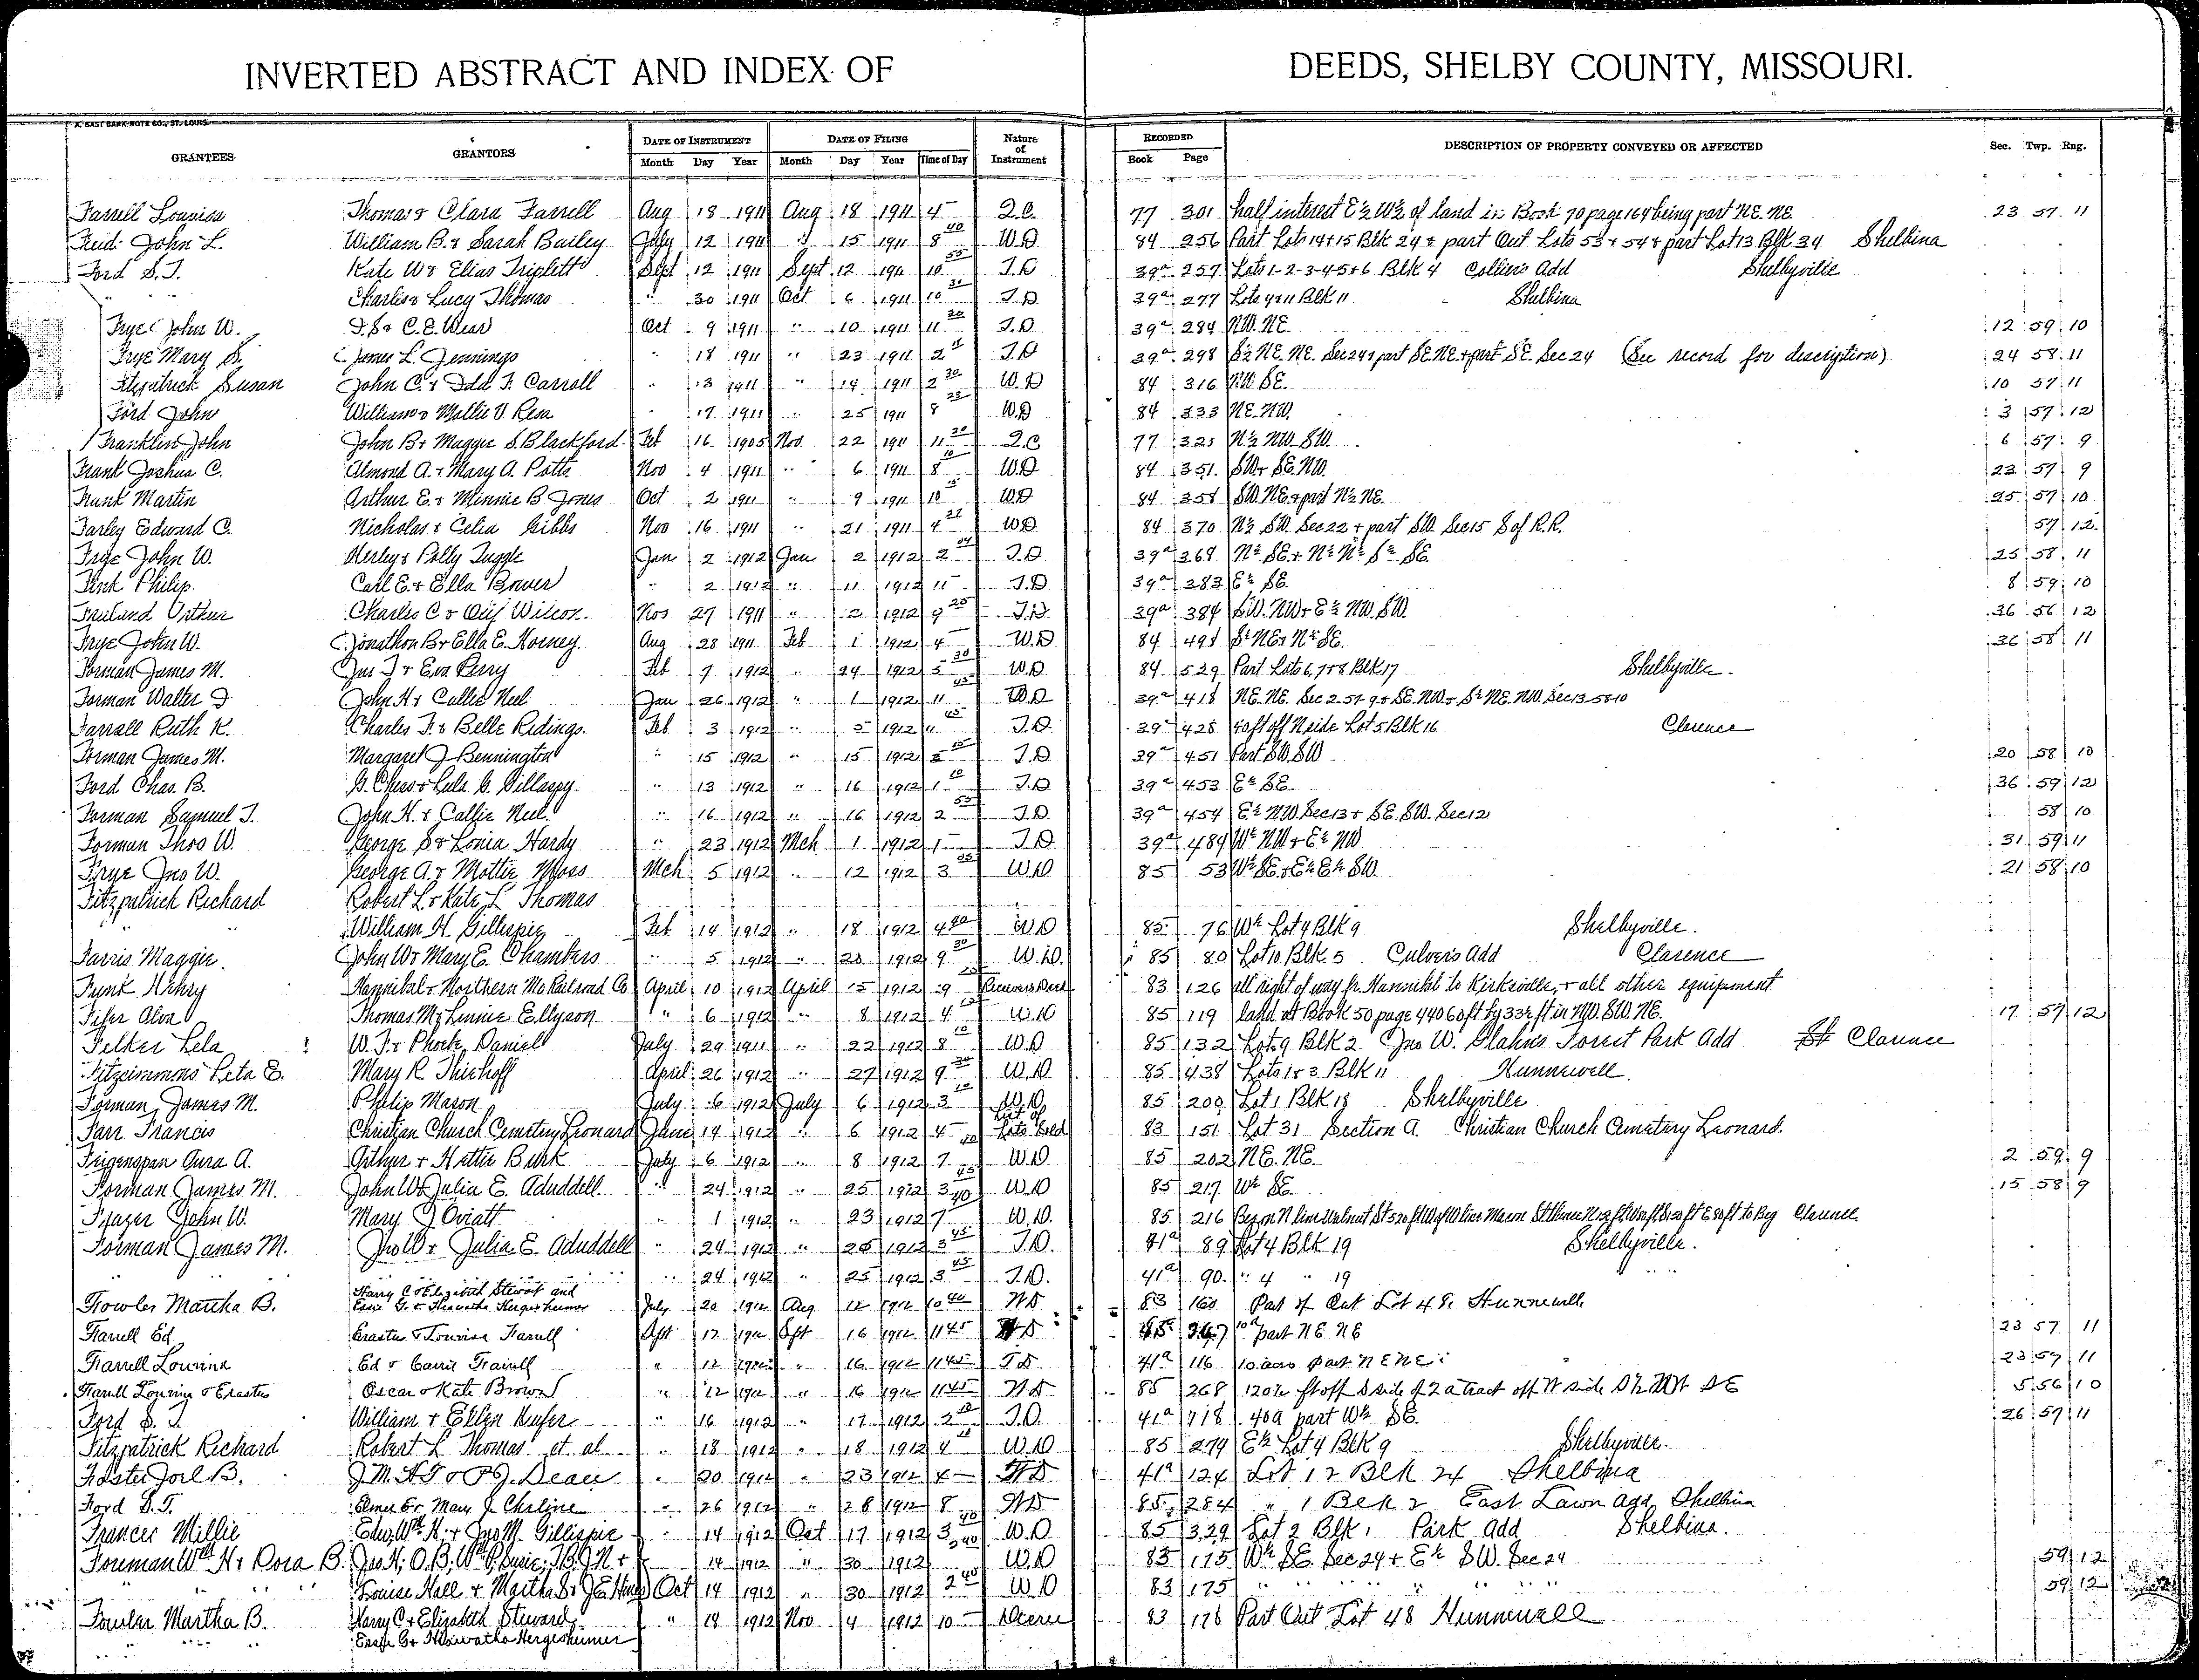 INVERTED ABSTRACT AND INDEX OF DEEDS, SHELBY COUNTY, MISSOURI.
A. EAST BANK-NOTE CO., ST. LOUIS.
GRANTEES GRANTORS DATE OF INSTRUMENT DATE OF FILING Nature of Instrument RECORDED DESCRIPTION OF PROPERTY CONVEYED OR AFFECTED Sec. Twp. Rng.
Month Day Year Month Day Year Time of Day Book Page
Farrell Louvisa Thomas & Clara Farrell Aug 18 1911 Aug 18 1911 4 Q.C. 77 301 half interest E½ W½ of land in Book 70 page 164 being part NE. NE. 23 57 11
John L. William B. & Sarah Bailey July 12 1911 " 15 1911 8 40 W.D 84 256 Part Lots 14 & 15 Blk 24 & part Out Lots 53 & 54 & part Lot 13 Blk 34 Shelbina
Ford S.T. Kate W & Elias Triplett Sept 12 1911 Sept 12 1911 10 55 T.D 39a 257 Lots 1-2-3-4-5+6 Blk 4 Collier's Add Shelbyville
Charlis & Lucy Thomas " 30 1911 Oct 6 1911 10 30 T.D 39a 277 Blk 11 Shelbina
Frye John W. & C.E. Wear Oct 9 1911 " 10 1911 11 20 T.D. 39a 284 NW. NE. 12 59 10
Frye Mary S. James L. Jennings " 18 1911 " 23 1911 2 T.D 39a 298 S½ NE. NE. Sec 24 & part SE. NE. & part SE. Sec 24 (See record for description) 24 58 11
Fitzpatrick Susan John C. & Ida F. Carroll " 13 1911 " 14 1911 2 30 W.D 84 316 NW SE. 10 57 11
Ford John William & Mollie V. Rea " 17 1911 " 25 1911 8 W.D 84 333 NE. NW. 3 57 12
Franklin John John B & Maggie S. Blackford Feb 16 1905 Nov 22 1911 11 20 Q.C 77 321 N½ NW. SW. 6 57 9
Frank Joshua C. Almond A. & Mary A. Potts Nov 4 1911 " 6 1911 8 10 W.D 84 351 SW & SE. NW. 23 57 9
Frank Martin Arthur E. & Minnie B Jones Oct 2 1911 " 9 1911 10 15 W.D 84 358 SW. NE. & part N½ NE. 25 57 10
Farley Edward C. Nicholas & Celia Gibbs Nov 16 1911 " 21 1911 4 W.D 84 370 N½ SW. Sec 22 & part SW. Sec 15 S of R.R. 57 12
Frye John W. & Polly Tuggle Jan 2 1912 Jan 2 1912 2 T.D 39a 368 N½ SE & N½ N½ S½ SE. 25 58 11
Fink Philip Carl E. & Ella Bower " 2 1912 " 11 1912 11 T.D 39a 383 E½ SE. 8 59 10
Charles C & Wilcox Nov 27 1911 " 12 1912 9 20 T.D 39a 384 SW. NW & E½ NW. SW. 36 56 12
Frye John W. Jonathon B & Ella E. Horney. Aug 28 1911 Feb 1 1912 4 W.D 84 498 S½ NE & N½ SE. 36 58 11
Forman James M. Jas J & Eva Perry Feb 7 1912 " 24 1912 5 30 W.D 84 529 Part Lots 6, 7 & 8 Blk 17 Shelbyville.
Forman Walter J John H & Callie Neel Jan 26 1912 " 1 1912 11 45 T.D 39a 418 NE. NE. Sec 2-57-9 & SE. NW. & S½ NE. NW. Sec 13-58-10
Farrall Ruth K. Charles F. & Belle Ridings. Feb 3 1912 " 5 1912 11 45 T.D. 39a 428 40 ft off N side Lot 5 Blk 16 Clarence
Forman James M. Margaret J Bennington " 15 1912 " 15 1912 T.D 39a 451 Part SW. SW 20 58 10
Ford Chas. B. G. Chess & Lula G. Gillaspy. " 13 1912 " 16 1912 1 10 T.D 39a 453 E½ SE. 36 59 12
Forman Samuel T. John H. & Callie Neel. " 16 1912 " 16 1912 2 50 T.D 39a 454 E½ NW. Sec 13 & SE. SW. Sec 12 58 10
Forman Thos W. George S & Lonia Hardy " 23 1912 Mch 1 1912 1 T.D 39a 489 W½ NW & E½ NW 31 59 11
Frye Jno W. George A. & Mottie Moss Mch 5 1912 " 12 1912 3 25 W.D 85 53 W½ SE. & E½ E½ SW. 21 58 10
Fitzpatrick Richard Robert L. & Kate L Thomas
" " William H. Gillispie Feb 14 1912 " 18 1912 4 40 W.D 85 76 W½ Lot 4 Blk 9 Shelbyville.
Farris Maggie. John W & Mary E. Chambers " 5 1912 " 20 1912 9 30 W.D. 85 80 Lot 10 Blk 5 Culver's Add Clarence
Funk Henry Hannibal & Northern Mo Railroad Co April 10 1912 April 15 1912 9 Receivers Deed 83 126 all right of way fr. Hannibal to Kirksville, & all other equipment
Fifer Alva Thomas M & Linnie Ellyson " 6 1912 " 8 1912 4 W.D 85 119 land at Book 50 page 440 60ft by 33½ ft in NW. SW. NE. 17 57 12
Felker Lela W.F. & Phoebe Daniel July 29 1911 " 22 1912 8 10 W.D 85 132 Lot 9 Blk 2 Jno W. Glahn's Forest Park Add Clarence
Fitzsimmons Leta E. Mary R. Thiehoff April 26 1912 " 27 1912 9 30 W.D 85 438 Lots 1 & 3 Blk 11 Hunnewell.
Forman James M. Philip Mason July 6 1912 July 6 1912 3 W.D 85 200 Lot 1 Blk 18 Shelbyville
Farr Francis Christian Church Cemetery Leonard June 14 1912 " 6 1912 4 List of Lots Sold 83 151 Lot 31 Section A. Christian Church Cemetery Leonard.
Feigenspan Aura A. & Hattie Burk July 6 1912 " 8 1912 7 W.D 85 202 NE. NE. 2 59 9
Forman James M. John W & Julia E. Aduddell " 24 1912 " 25 1912 3 W.D 85 217 W½ SE. 15 58 9
Frazer John W. Mary J Oviatt " 1 1912 " 23 1912 7 40 W.D. 85 216 Beg on N line Walnut St 520 ft W of W line Macon St thence to Beg Clarence.
Forman James M. Jno W & Julia E. Aduddell " 24 1912 " 25 1912 3 45 T.D. 41a 89 Lot 4 Blk 19 Shelbyville.
" " " 24 1912 " 25 1912 3 45 T.D. 41a 90 " 4 " 19 " "
Fowler Martha B. Harry C & Elizabeth Stewart and Essie G. & Hiawatha Hergesheimer July 20 1912 Aug 12 1912 10 40 WD 83 160 Part of Out Lot 48. Hunnewell
Farrell Ed Erastus & Louvisa Farrell Sept 12 1912 Sept 16 1912 11 45 WD 10a part NE NE 23 57 11
Farrell Louvina Ed & Carrie Farrell " 12 1912 " 16 1912 11 45 TD 41a 116 10 acres part NE NE 23 57 11
Farrell Louvina & Erastus Oscar & Kate Brown " 12 1912 " 16 1912 11 45 WD 85 268 120½ ft off S side of 2 a tract off W side S½ NW SE 5 56 10
Ford S.T. William & Ellen Kufer " 16 1912 " 17 1912 2 T.D. 41a 118 40a part W½ SE. 26 57 11
Fitzpatrick Richard Robert L Thomas et al " 18 1912 " 18 1912 4 W.D 85 274 E½ Lot 4 Blk 9 Shelbyville.
Foster Joel B. " 20 1912 " 23 1912 4 41a 124 Lot 12 Blk 24 Shelbina
Ford S.T. Elmer E & Mary J. " 26 1912 " 28 1912 8 WD 85 284 " 1 Blk 2 East Lawn Add Shelbina
Frances Millie Edw, Wm H. & Jno M. Gillispie " 14 1912 Oct 17 1912 3 40 W.D 85 329 Lot 2 Blk 1 Park Add Shelbina.
Foreman Wm H & Dora B. Jas H; O.B; Wm P; Susie; & " 14 1912 " 30 1912 W.D 83 175 W½ SE. Sec 24 & E½ SW. Sec 24 59 12
" " Louise Hall & Martha S & J E Hines Oct 14 1912 " 30 1912 2 40 W.D 83 175 " " " " " 59 12
Fowler Martha B. Harry C & Elizabeth Steward " 18 1912 Nov 4 1912 10 Decree 83 178 Part Out Lot 48 Hunnewell
" " Essie G & Hiawatha Hergesheimer